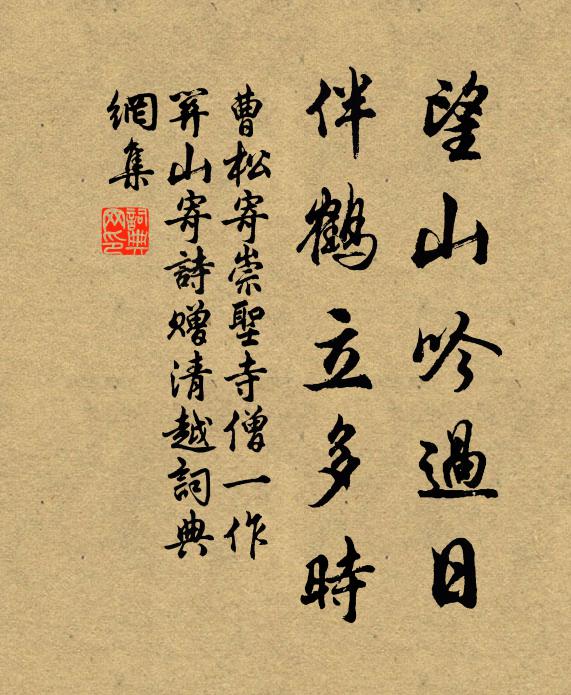 望山吟過日
伴鶴立多時
曹松寄崇聖寺僧一作
羿山寄詩贈清越詞典
網集
詞典
网印